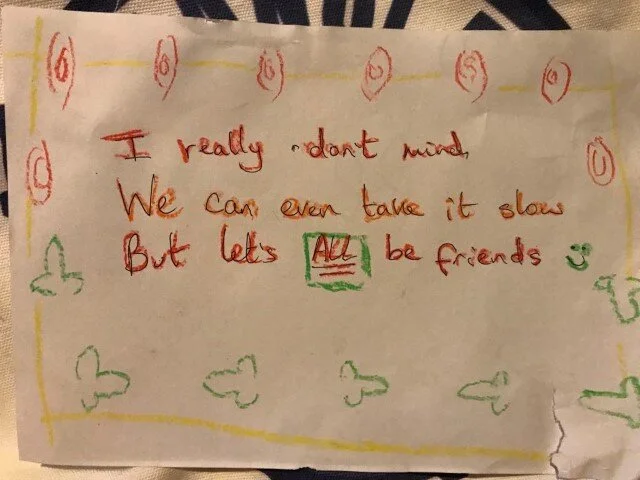 I really don't mind,
We can even take it slow
But let's ALL be friends :)